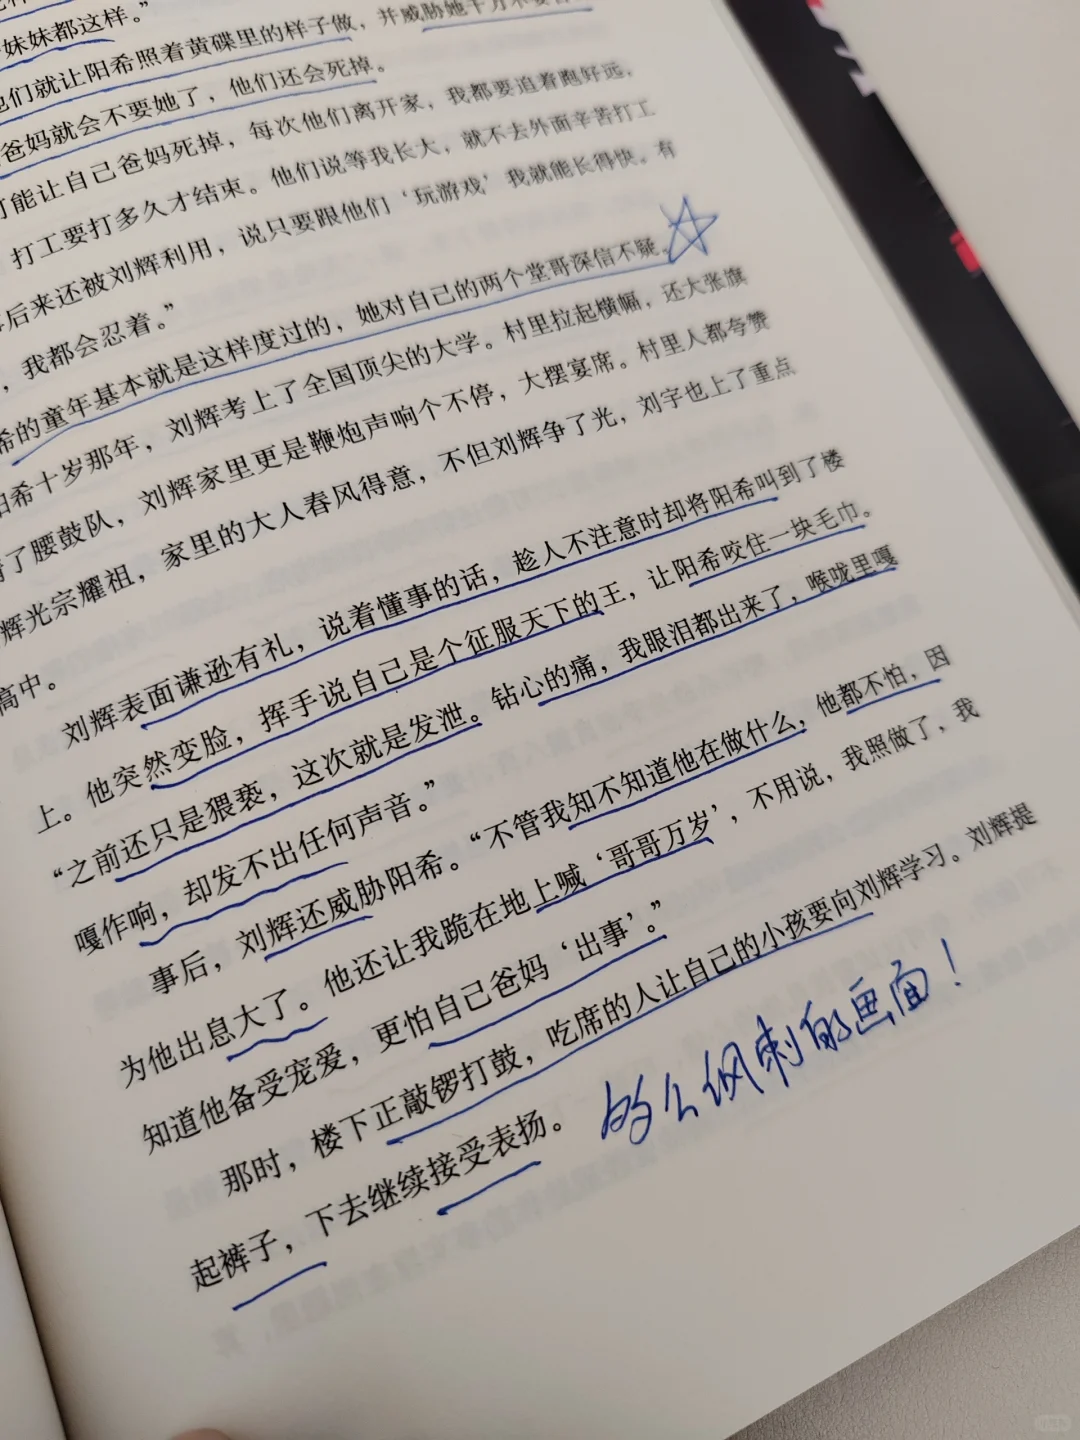 妹妹都这样。”
他们就让阳希照着黄碟里的样子做，并威胁她千万不要
爸妈就会不要她了，他们还会死掉。
可能让自己爸妈死掉，每次他们离开家，我都要追着跑好远，
打工要打多久才结束。他们说等我长大，就不去外面辛苦打工
后来还被刘辉利用，说只要跟他们‘玩游戏’我就能长得快。有
，我都会忍着。”
希的童年基本就是这样度过的，她对自己的两个堂哥深信不疑。
阳希十岁那年，刘辉考上了全国顶尖的大学。村里拉起横幅，还大张旗
了腰鼓队，刘辉家里更是鞭炮声响个不停，大摆宴席。村里人都夸赞
辉光宗耀祖，家里的大人春风得意，不但刘辉争了光，刘宇也上了重点
高中。
刘辉表面谦逊有礼，说着懂事的话，趁人不注意时却将阳希叫到了楼
上。他突然变脸，挥手说自己是个征服天下的王，让阳希咬住一块毛巾。
“之前还只是猥亵，这次就是发泄。钻心的痛，我眼泪都出来了，喉咙里嘎
嘎作响，却发不出任何声音。”
事后，刘辉还威胁阳希。“不管我知不知道他在做什么，他都不怕，因
为他出息大了。他还让我跪在地上喊‘哥哥万岁’，不用说，我照做了，我
知道他备受宠爱，更怕自己爸妈‘出事’。”
那时，楼下正敲锣打鼓，吃席的人让自己的小孩要向刘辉学习。刘辉提
起裤子，下去继续接受表扬。
的么讽刺的画面！